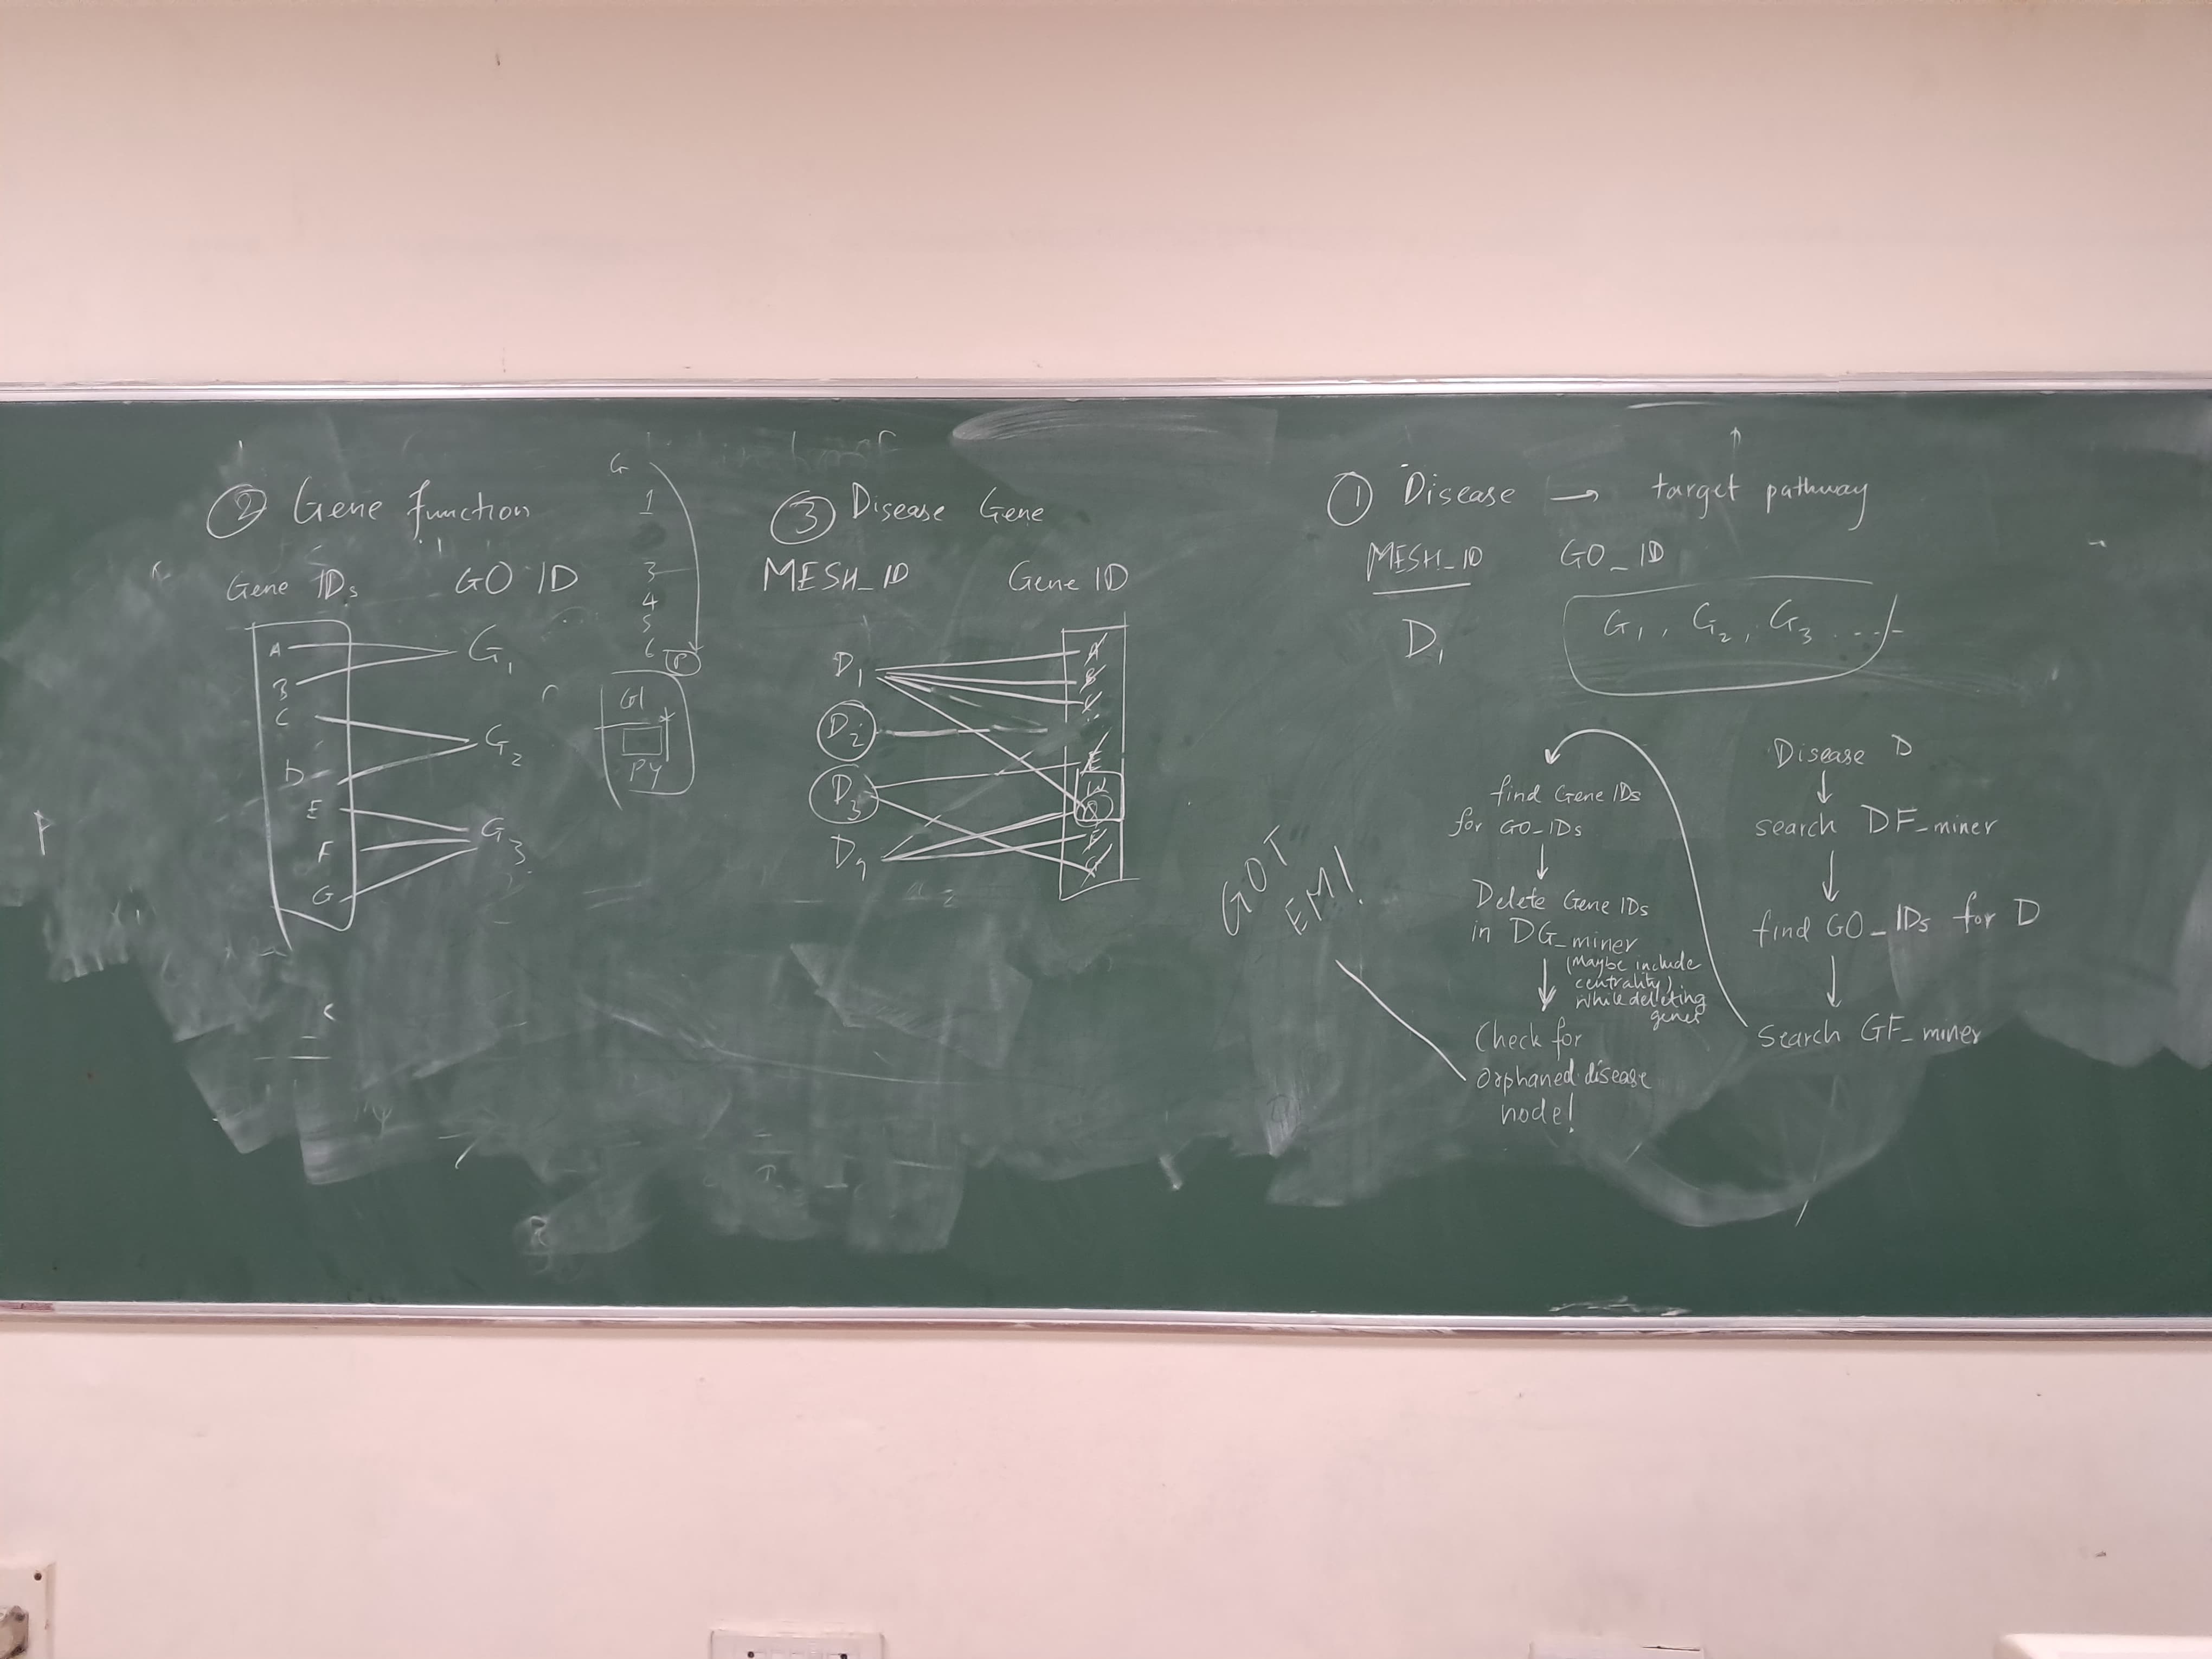 ② Gene function
Gene IDs GO ID
A
B
C
D
E
F
G
G1
G2
G3
G
1
3
4
5
6 P
G1
PY
③ Disease Gene
MESH_ID Gene ID
D1
D2
D3
A
B
C
E
F
G
① Disease → target pathway
MESH_ID GO_ID
D1
G1, G2, G3 ....
Disease D
↓
search DF_miner
↓
find GO_IDs for D
↓
search GF_miner
find Gene IDs
for GO_IDs
↓
Delete Gene IDs
in DG_miner
↓
(Maybe include
centrality)
while deleting
genes
Check for
Orphaned disease
node!
GOT
EM!